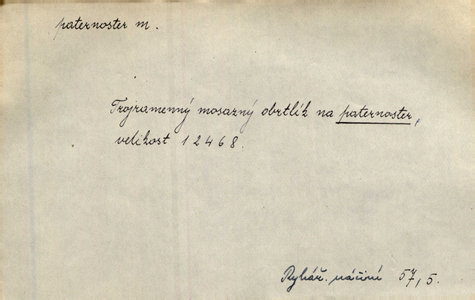 paternoster m.
Trojramenný mosazný obrtlík na paternoster,
velikost 1 2 4 6 8.
Rybář. náčiní 57, 5.